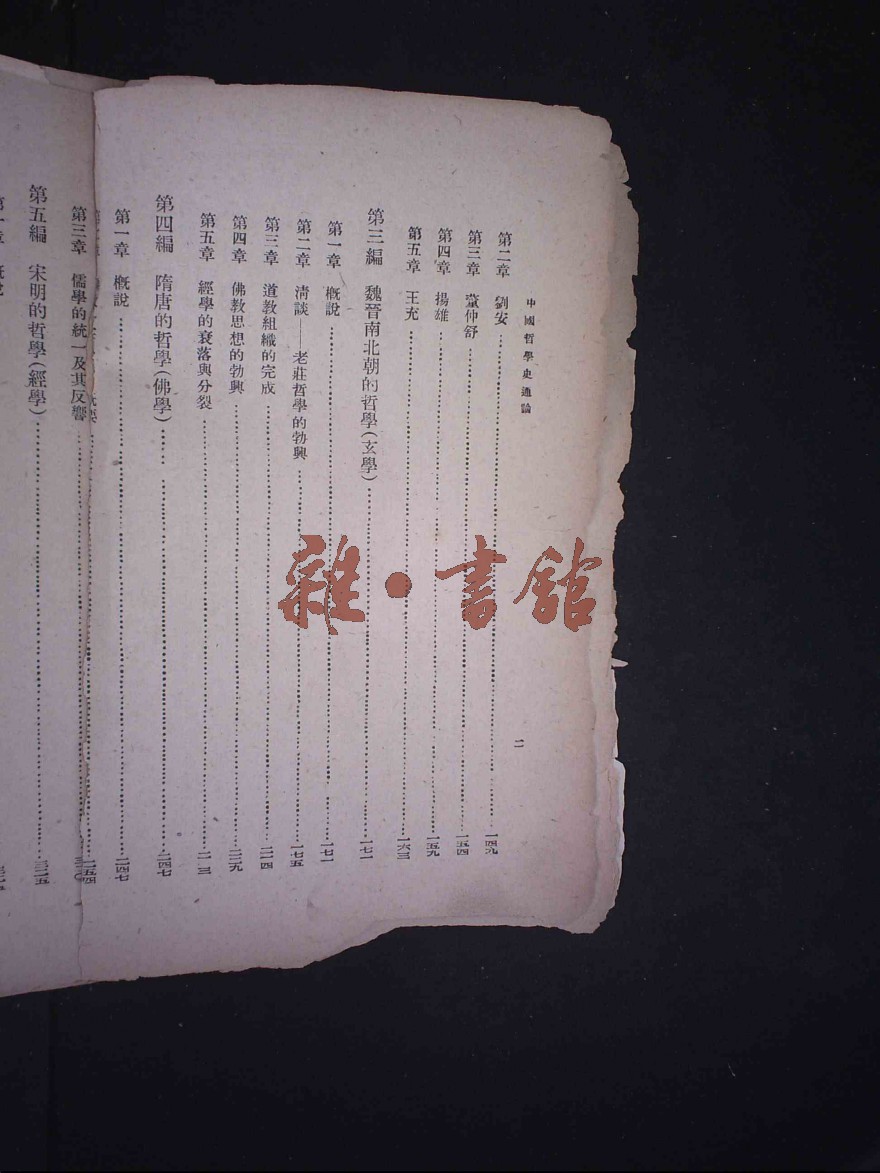 中國哲學史通論
二
第二章 劉安……一四九
第三章 董仲舒……一五四
第四章 揚雄……一五九
第五章 王充……一六三
第三編 魏晉南北朝的哲學(玄學)……一七一
第一章 概說……一七一
第二章 清談——老莊哲學的勃興……一七五
第三章 道教組織的完成……二一四
第四章 佛教思想的勃興……二二九
第五章 經學的衰落與分裂……
第四編 隋唐的哲學(佛學)……二四七
第一章 概說……二四七
二五四
第三章 儒學的統一及其反響……
第五編 宋明的哲學(經學)……三二五
概說
雜·書館